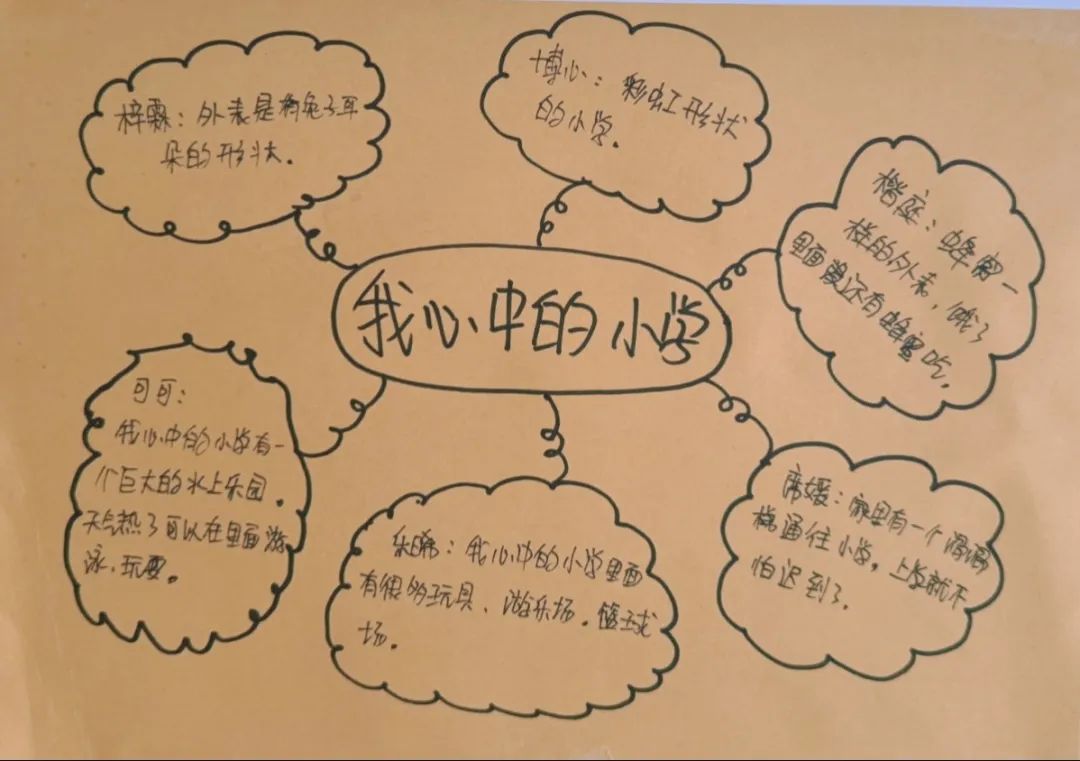 梓霖：外表是狗兔子耳
朵的形状。
博心：彩虹形状
的小学。
楷庭：蜂窝一
样的外表，饿了
里面还有蜂蜜吃。
我心中的小学
可可：
我心中的小学有一
个巨大的水上乐园。
天气热了可以在里面游
泳、玩耍。
乐晞：我心中的小学里面
有很多玩具、游乐场。篮球
场。
媛：家里有一个滑滑
梯通往小学，上学就不
怕迟到了。